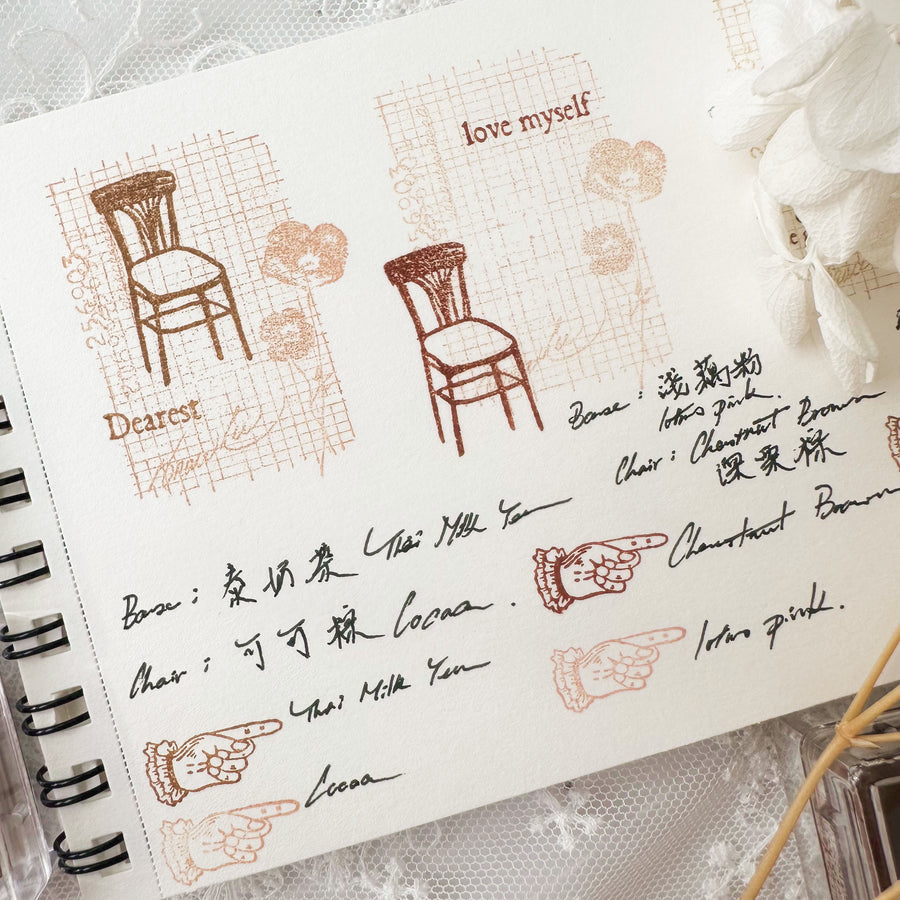 love myself
Dearest
Base : 淺藕粉
lotus pink.
Chair : Chestnut Brown
深栗棕
Base : 泰奶茶 Thai Milk Tea
Chair : 可可棕 Cocoa .
Chestnut Brown
lotus pink.
Thai Milk Tea
Cocoa